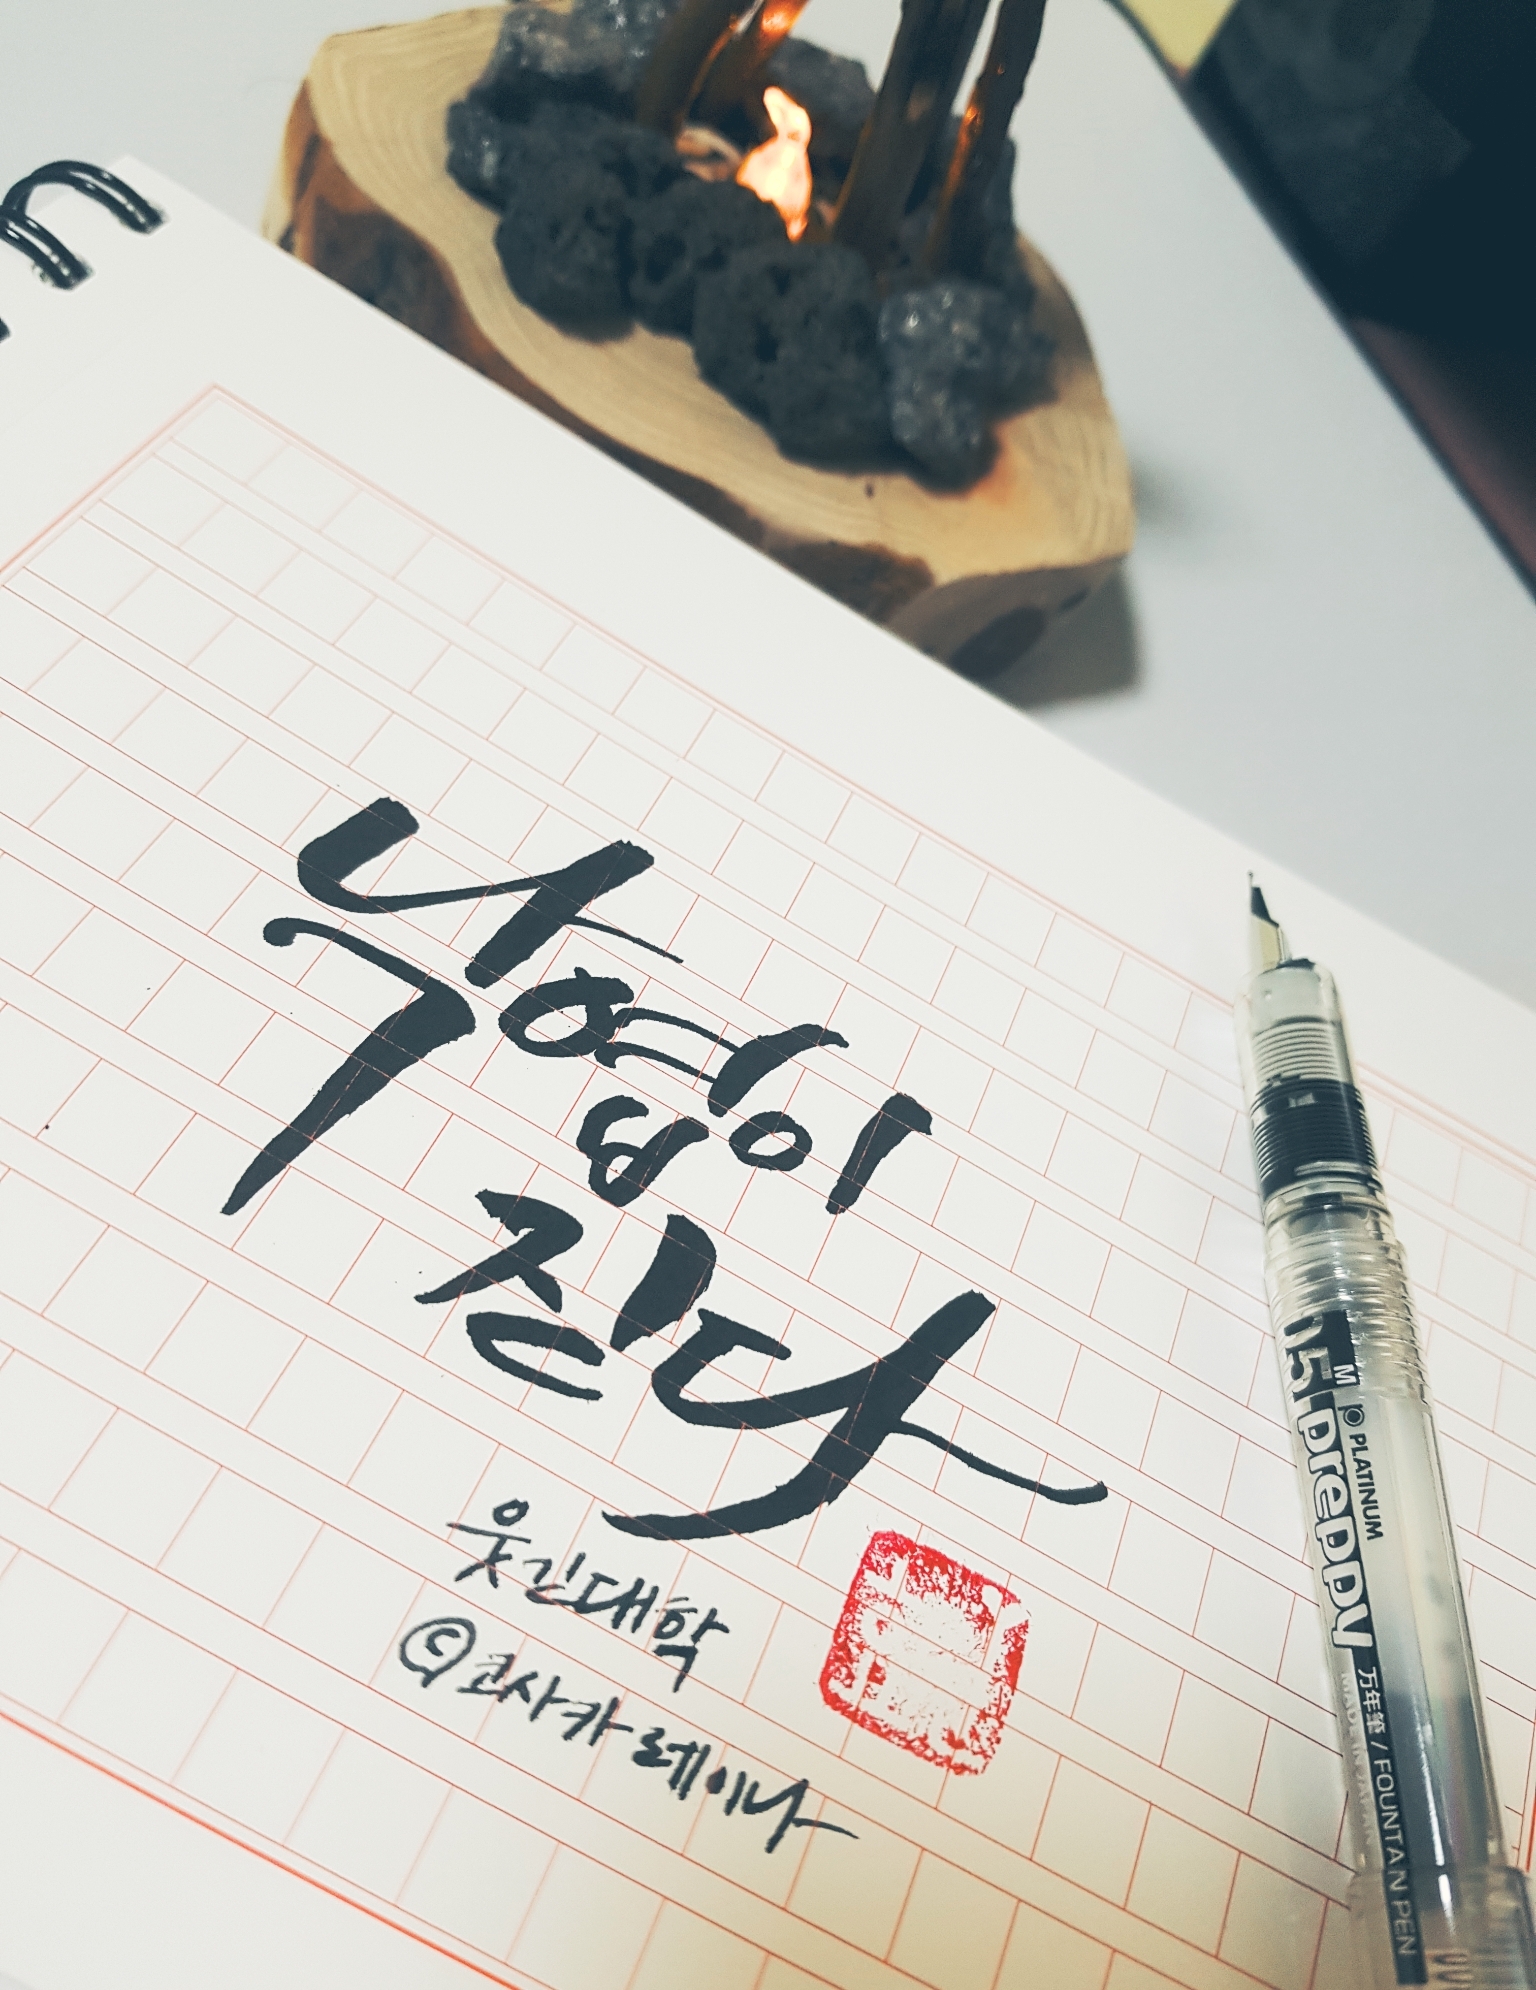 낙엽이
진다
웃긴대학
©코사카 레이나
05 M PLATINUM
preppy 万年筆 / FOUNTAIN PEN
MADE IN JAPAN